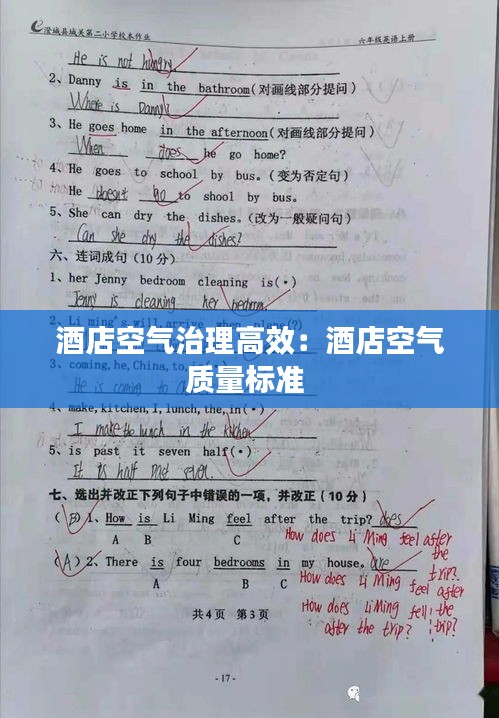 澄城县城关第二小学校本作业 六年级英语上册
He is not hungry.
2、Danny is in the bathroom(对画线部分提问)
Where is Danny?
3、He goes home in the afternoon(对画线部分提问)
When does he go home?
4、He goes to school by bus。(变为否定句)
He doesn't go to shool by bus.
5、She can dry the dishes。(改为一般疑问句)
Can she dry the dishes?
六、连词成句(10分)
1、her Jenny bedroom cleaning is(•)
Jenny is cleaning her bedroom.
酒店空气治理高效：酒店空气
质量标准
3、coming,he,China,to,is
He is coming to
4、make,kitchen,I,lunch,the,in(•)
I make the lunch in the kitchen
5、is past it seven half(•)
It is half past seven.
七、选出并改正下列句子中错误的一项，并改正(10分)
(B)1、How is Li Ming feel after the trip? does
A B C
How does Li Ming feel after
the
trip?
(A)2、There is four bedrooms in my house。are
A B C
How does Li Ming feel after
the
How does Li Ming fell
after the trip? trip?
共4页 第3页
-17-